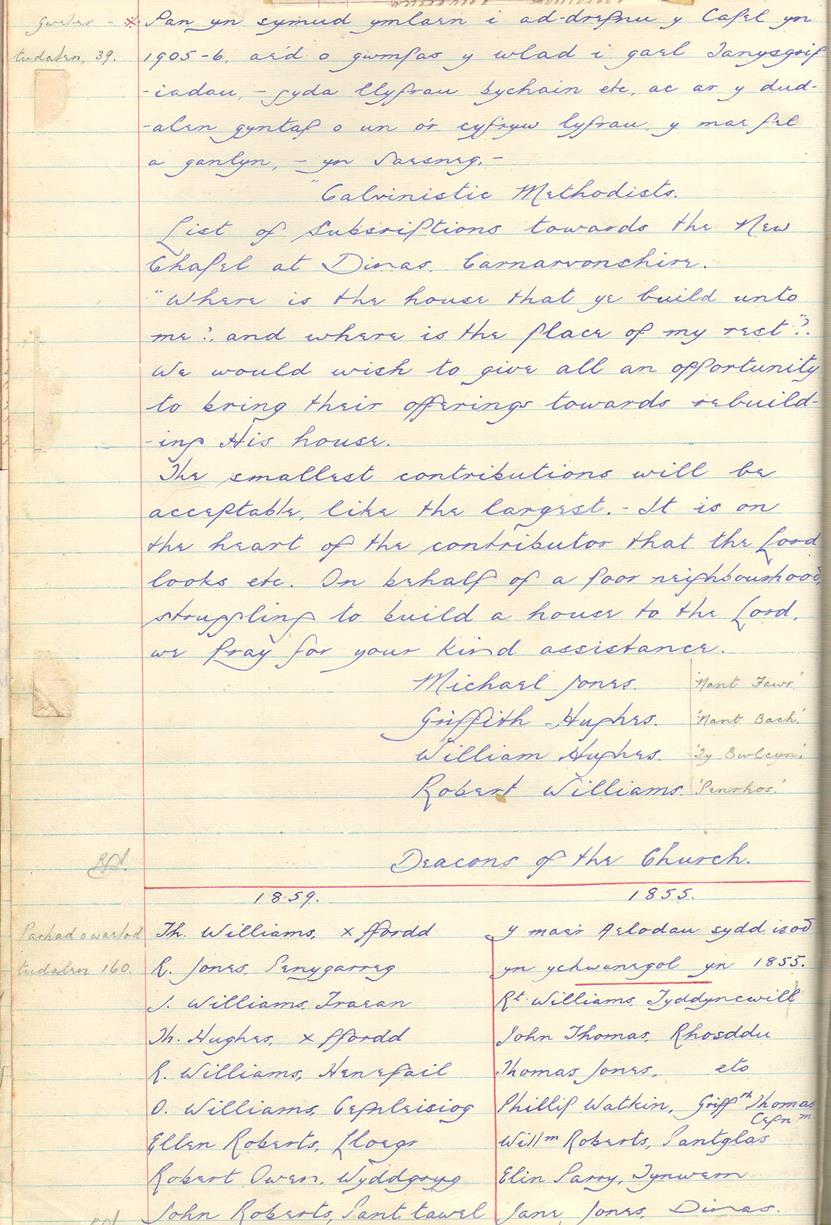 Gweler - * Pan yn symud ymlaen i ad-drefnu y Capel yn
tudalen, 39. 1905-6, aed o gwmpas y wlad i gael Tanysgrif
-iadau, - gyda llyfrau bychain etc, ac ar y dud-
-alen gyntaf o un o'r cyfryw lyfrau, y mae fel
a ganlyn, - yn Saesneg. -
"Calvinistic Methodists.
List of subscriptions towards the New
Chapel at Dinas, Carnarvonshire.
"Where is the house that ye build unto
me?, and where is the place of my rest"?.
We would wish to give all an opportunity
to bring their offerings towards rebuild-
-ing His house.
The smallest contributions will be
acceptable, like the largest. - It is on
the heart of the contributor that the Lord
looks etc. On behalf of a poor neighbourhood,
struggling to build a house to the Lord,
we pray for your kind assistance.
Michael Jones. 'Nant Fawr.'
Griffith Hughes. 'Nant Bach.'
William Hughes.
Robert Williams. 'Penrhos.'
Deacons of the Church.
1859. 1855.
Parhad o waelod Th. Williams, x ffordd
tudalen 160. R. Jones, Penygarreg
J. Williams, Traean
Th. Hughes, x ffordd
R. Williams, Henefail
O. Williams, Cefnleisiog
Ellen Roberts, Lloegr
Robert Owen, Wyddgrug
John Roberts, Pant tawel
y mae'r Aelodau sydd isod
yn ychwanegol yn 1855.
Rt. Williams, Tyddyncwill
John Thomas, Rhosddu
Thomas Jones, eto
Phillip Watkin, Griffth Thomas
Cefn m.
Willm Roberts, Pantglas
Elin Parry, Tynwern
Jane Jones, Dinas.